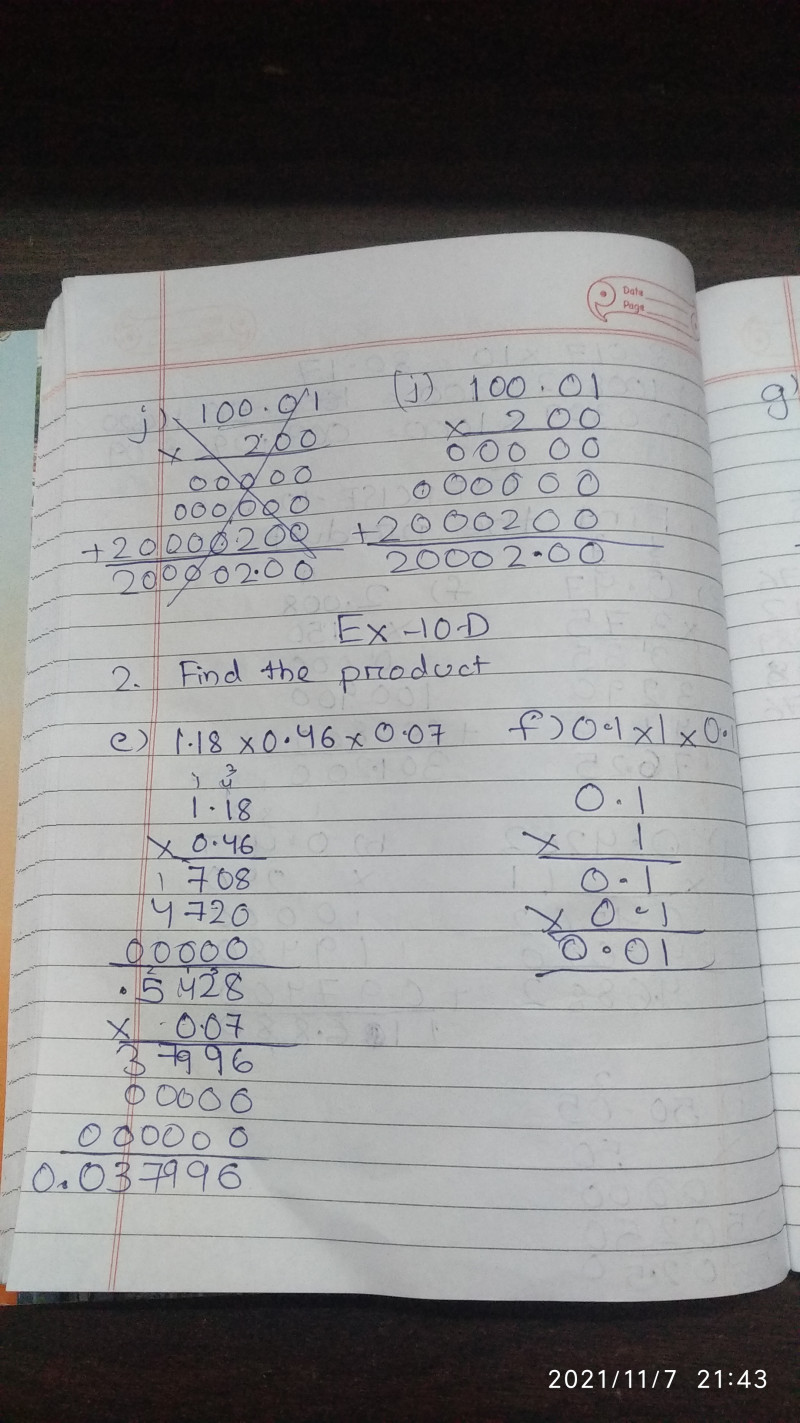 Date
Page
j) 100.01
x 200
00000
000000
+20000200
200002.00
(j) 100.01
x 200
00000
000000
+2000200
20002.00
g)
Ex-10-D
2. Find the product
e) 1.18 x 0.46 x 0.07
1.18
x 0.46
1708
4720
00000
.5428
x 0.07
37996
00000
000000
0.037996
f) 0.1 x 1 x 0.1
0.1
x 1
0.1
x 0.1
0.01
2021/11/7 21:43